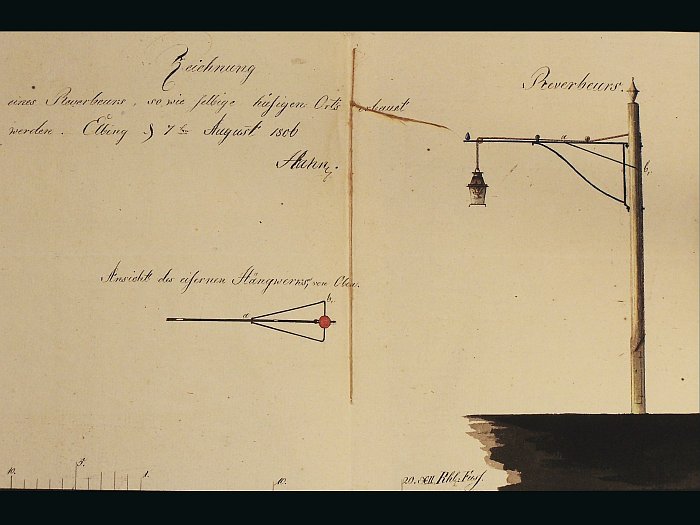 Zeichnung
eines Reverbeurs, so wie selbige hiesigen Orts erbaut
werden. Elbing d 7ten August 1806
Reverbeurs.
a
b.
Ansicht des eisernen Hängwerks, von Oben.
a
b.
10. 5. 1. 10. 20. Rhl: Fuss.